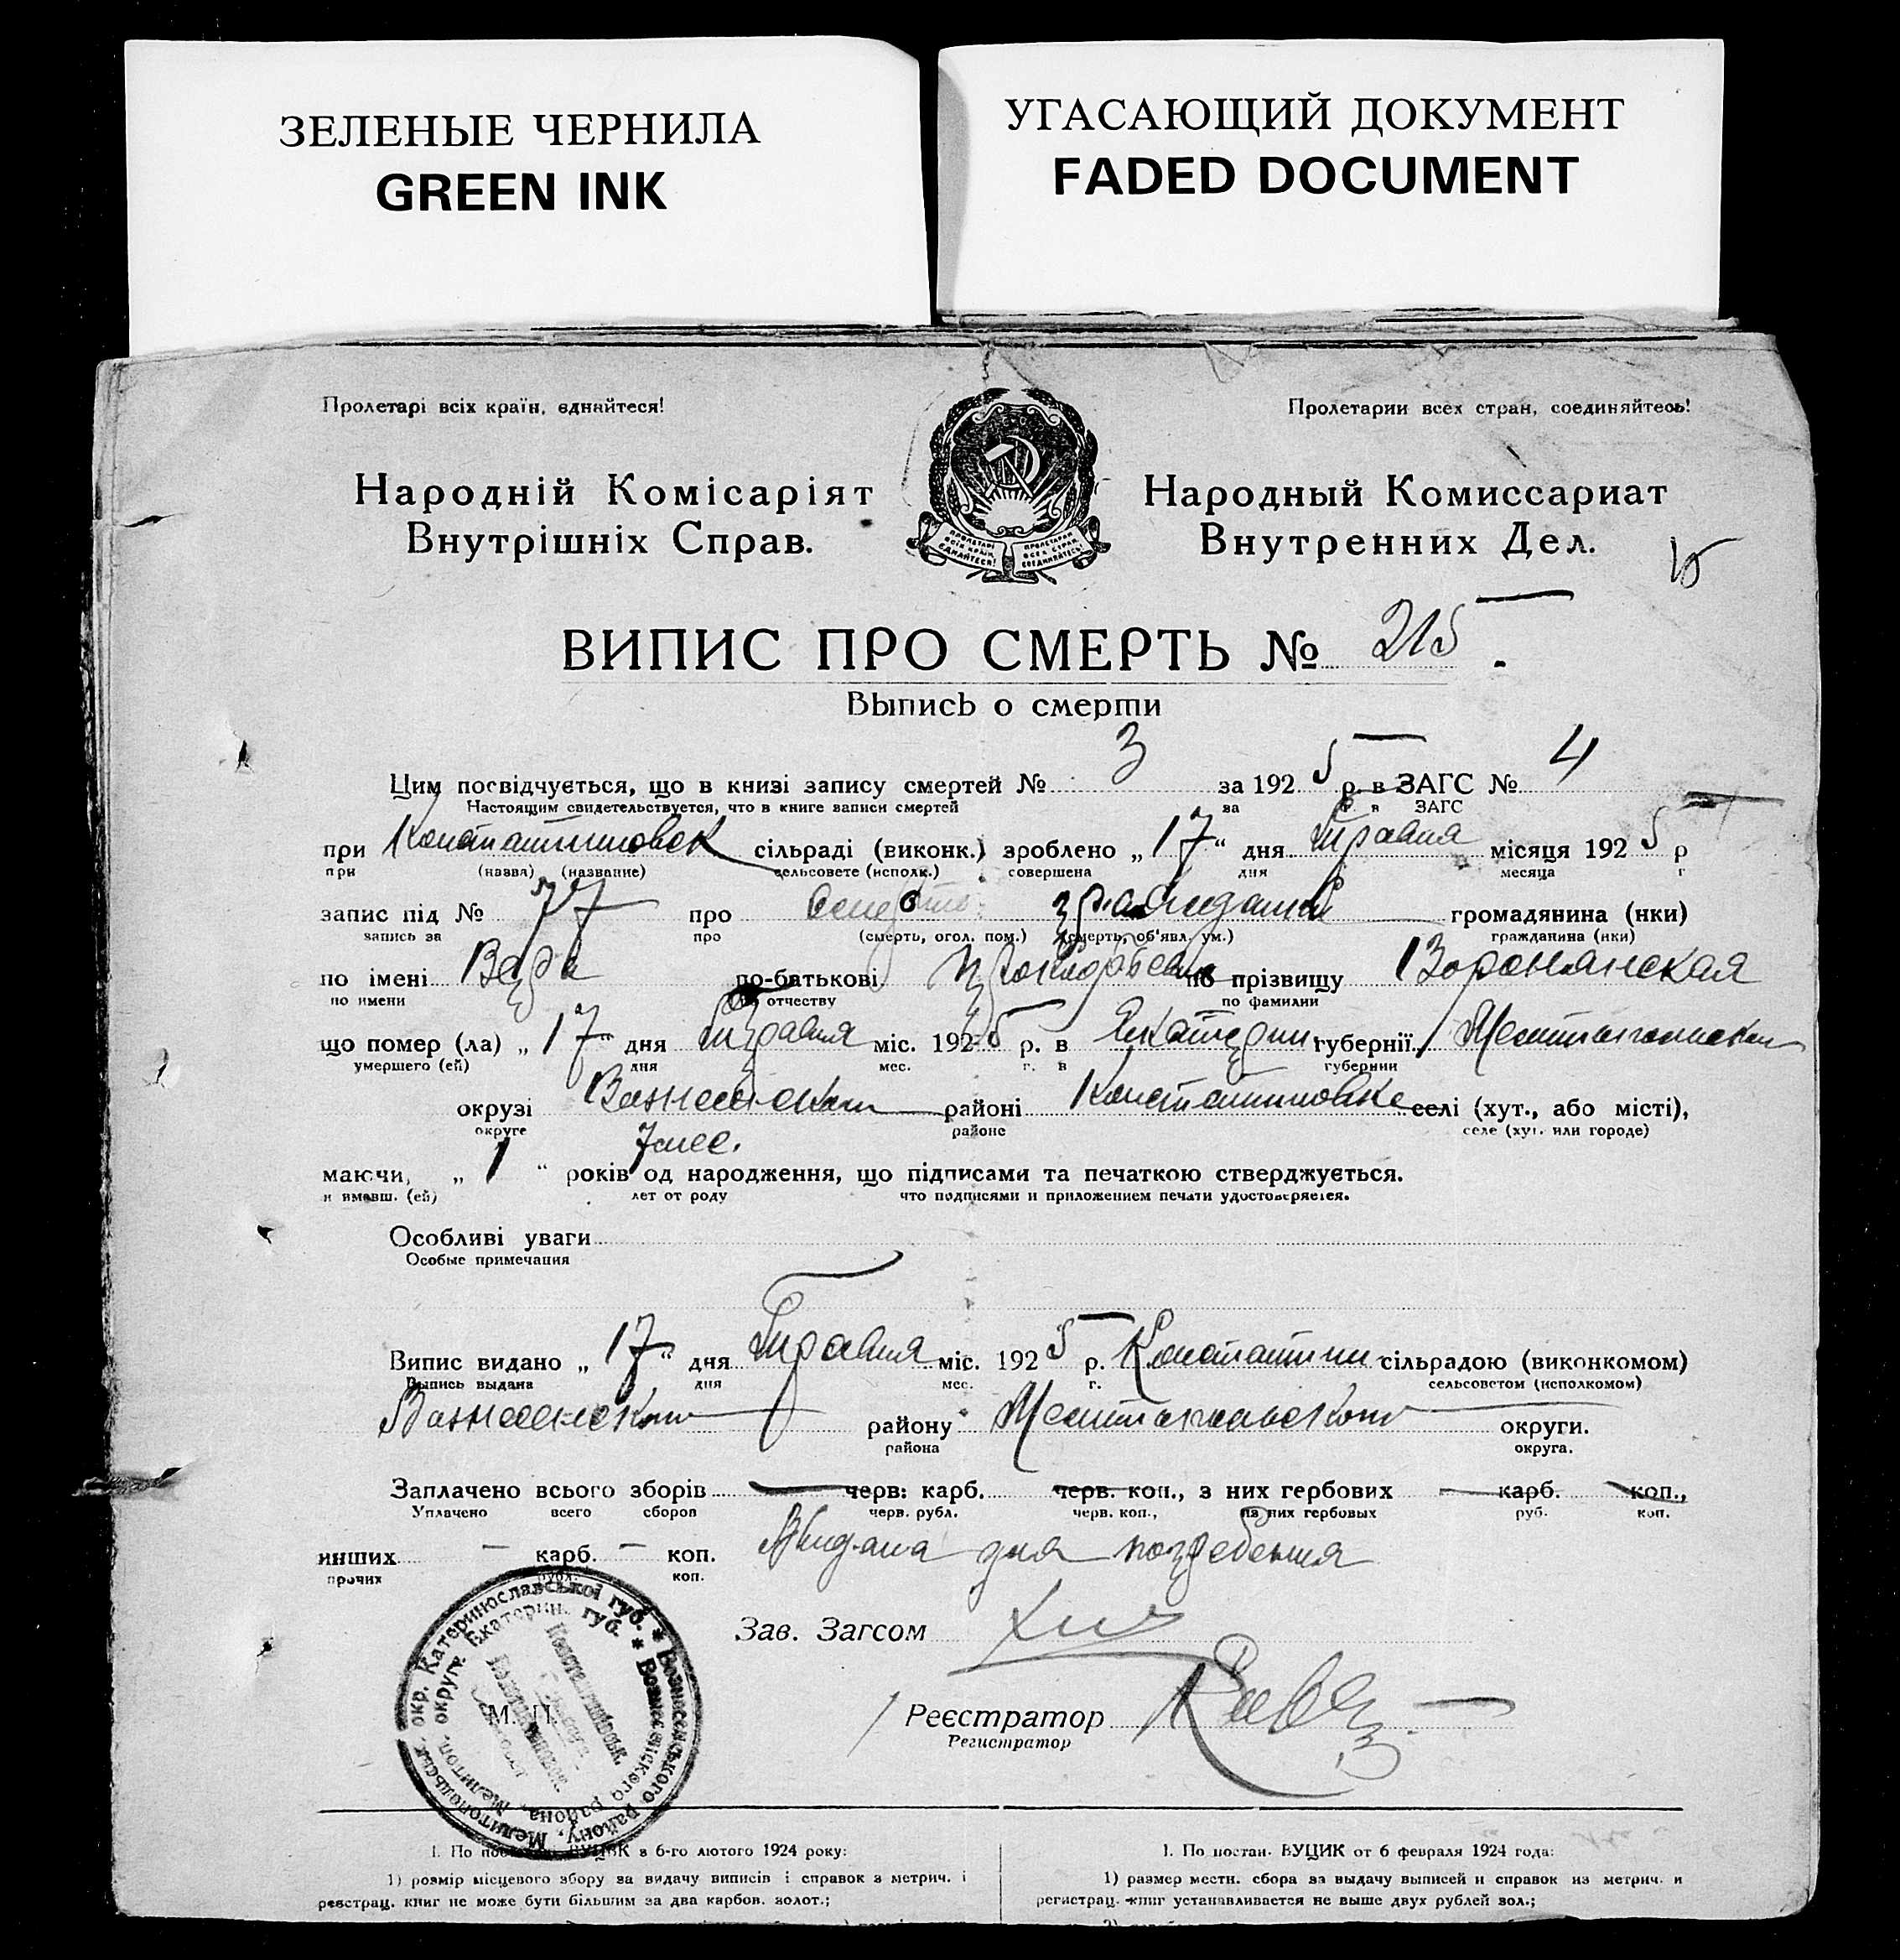 ЗЕЛЕНЫЕ ЧЕРНИЛА
GREEN INK
УГАСАЮЩИЙ ДОКУМЕНТ
FADED DOCUMENT
Пролетарі всіх країн, єднайтеся!
Пролетарии всех стран, соединяйтесь!
Народній Комісаріят
Внутрішніх Справ.
Народный Комиссариат
Внутренних Дел.
ПРОЛЕТАРІ ВСІХ КРАЇН ЄДНАЙТЕСЯ! ПРОЛЕТАРИИ ВСЕХ СТРАН СОЕДИНЯЙТЕСЬ!
ВИПИС ПРО СМЕРТЬ № 215
Выпись о смерти
Цим посвідчується, що в книзі запису смертей № 3 за 1925 р. в ЗАГС № 4
Настоящим свидетельствуется, что в книге записи смертей за г. в ЗАГС
при Константиновск сільраді (виконк.) зроблено „17“ дня Травня місяця 1925 р
при (назва) (название) сельсовете (исполк.) совершена дня месяца г
запис під № 77 про смерть громадянина (нки)
запись за про (смерть, огол. пом.) (смерть, об'явл. ум.) гражданина (нки)
по імені Вера по-батькові по прізвищу Воронянская
по имени по отчеству по фамилии
що помер (ла) „17“ дня Травня міс. 1925 р. в Екатерин губернії Мелитопольском
умершего (ей) дня мес. г. в губернии
окрузі Вознесенском районі Константиновке селі (хут., або місті),
округе районе селе (хут. или городе)
7 мес.
маючи, „1“ років од народження, що підписами та печаткою стверджується.
и имевш. (ей) лет от роду что подписями и приложением печати удостоверяется.
Особливі уваги
Особые примечания
Випис видано „17“ дня Травня міс. 1925 р. Константин сільрадою (виконкомом)
Выпись выдана дня мес. г. сельсоветом (исполкомом)
Вознесенского району Мелитопольского округи.
района округа.
Заплачено всього зборів черв. карб. черв. коп., з них гербових карб. коп.,
Уплачено всего сборов черв. рубл. черв. коп., из них гербовых руб. коп.
инших карб. коп. Выдана для погребения
прочих рубл. коп.
Зав. Загсом
Реєстратор
Регистратор
М. П.
Мелитопольськ. окр. Катеринославської губ. * Вознесенського району,
Мелитоп. округ. Екатерин. губ. * Вознесенского района,
1. По постан. ВУЦВК з 6-го лютого 1924 року:
1) розмір місцевого збору за видачу виписів і справок з метрич. і
реєстрац. книг не може бути більшим за два карбов. золот.;
1. По постан. ВУЦИК от 6 февраля 1924 года:
1) размер местн. сбора за выдачу выписей и справок из метрич. и
регистрац. книг устанавливается не выше двух рублей зол.;